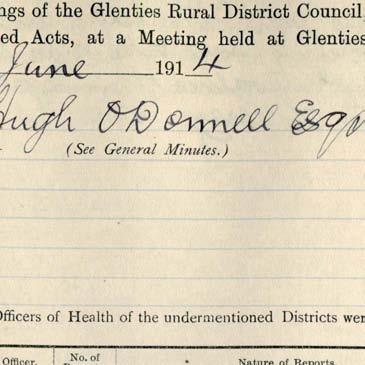 ngs of the Glenties Rural District Council,
ed Acts, at a Meeting held at Glenties
June 1914
Hugh O'Donnell Esqr
(See General Minutes.)
Officers of Health of the undermentioned Districts wer
Officer. No. of Nature of Reports.